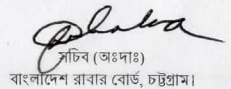 সচিব (অঃদাঃ)
বাংলাদেশ রাবার বোর্ড, চট্টগ্রাম।